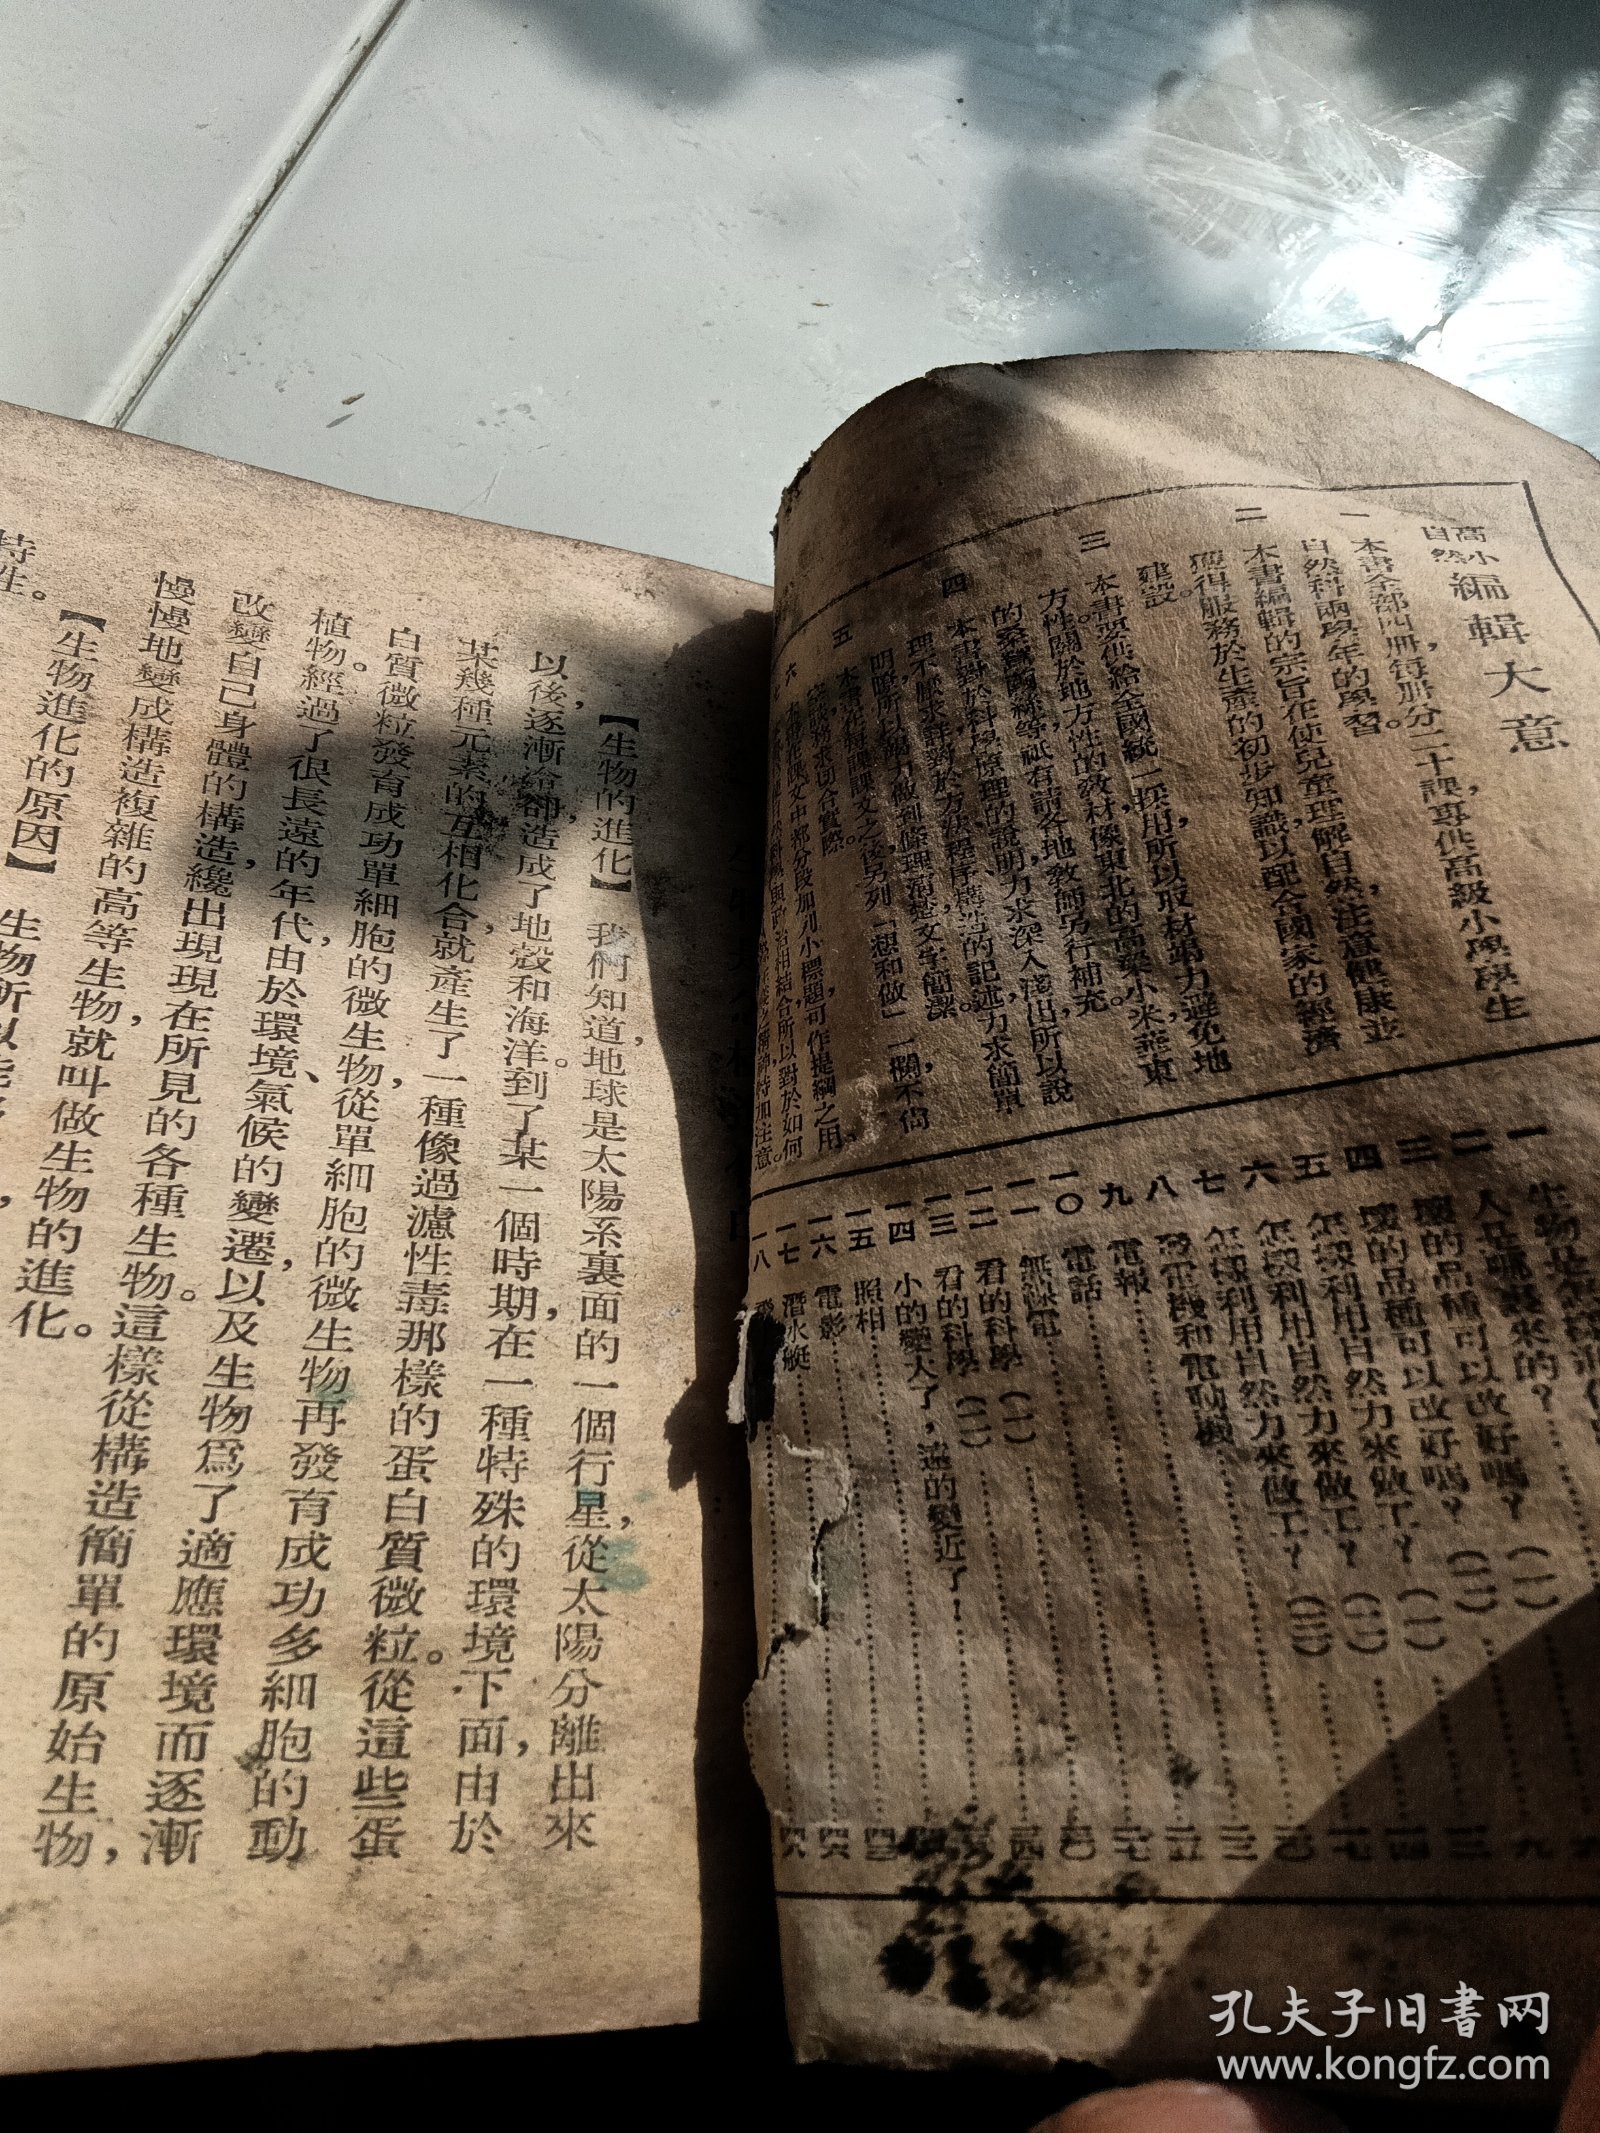 高小
自然
編輯大意
一 本書全部四冊，每冊分二十課，專供高級小學學生
自然科兩學年的學習。
二 本書編輯的宗旨在使兒童理解自然，注意健康，並
獲得服務於生產的初步知識，以配合國家的經濟
建設。
三 本書要供給全國統一採用，所以取材竭力避免地
方性。關於地方性的教材，像東北的高粱、小米，華東
的蠶絲等，祇有請各地教師另行補充。
四 本書對於科學原理的說明，力求深入淺出，所以說
理不厭求詳；對於方法、程序、構造的記述，力求簡單
明瞭，所以竭力做到條理清楚，文字簡潔。
五 本書在每課課文之後，另列「想和做」一欄，不尚
空談，務求切合實際。
六 本書在課文中都分段加列小標題，可作提綱之用。
一 生物是怎樣
二 人是哪裏來的？
三 壞的品種可以改好嗎？（一）
四 壞的品種可以改好嗎？（二）
五 怎樣利用自然力來做工？（一）
六 怎樣利用自然力來做工？（二）
七 怎樣利用自然力來做工？（三）
八 發電機和電動機
九 電報
一〇 電話
一一 無線電
一二 看的科學（一）
一三 看的科學（二）
一四 小的變大了，遠的變近了！
一五 照相
一六 電影
一七 潛水艇
一八
【生物的進化】 我們知道，地球是太陽系裏面的一個行星，從太陽分離出來
以後，逐漸冷卻，造成了地殼和海洋。到了某一個時期，在一種特殊的環境下面，由於
某幾種元素的互相化合，就產生了一種像過濾性毒那樣的蛋白質微粒。從這些蛋
白質微粒發育成功單細胞的微生物，從單細胞的微生物再發育成功多細胞的動
植物。經過了很長遠的年代，由於環境、氣候的變遷，以及生物爲了適應環境而逐漸
改變自己身體的構造，纔出現現在所見的各種生物。這樣從構造簡單的原始生物，
慢慢地變成構造複雜的高等生物，就叫做生物的進化。
【生物進化的原因】 生物所以能
特性。
孔夫子旧書网
www.kongfz.com